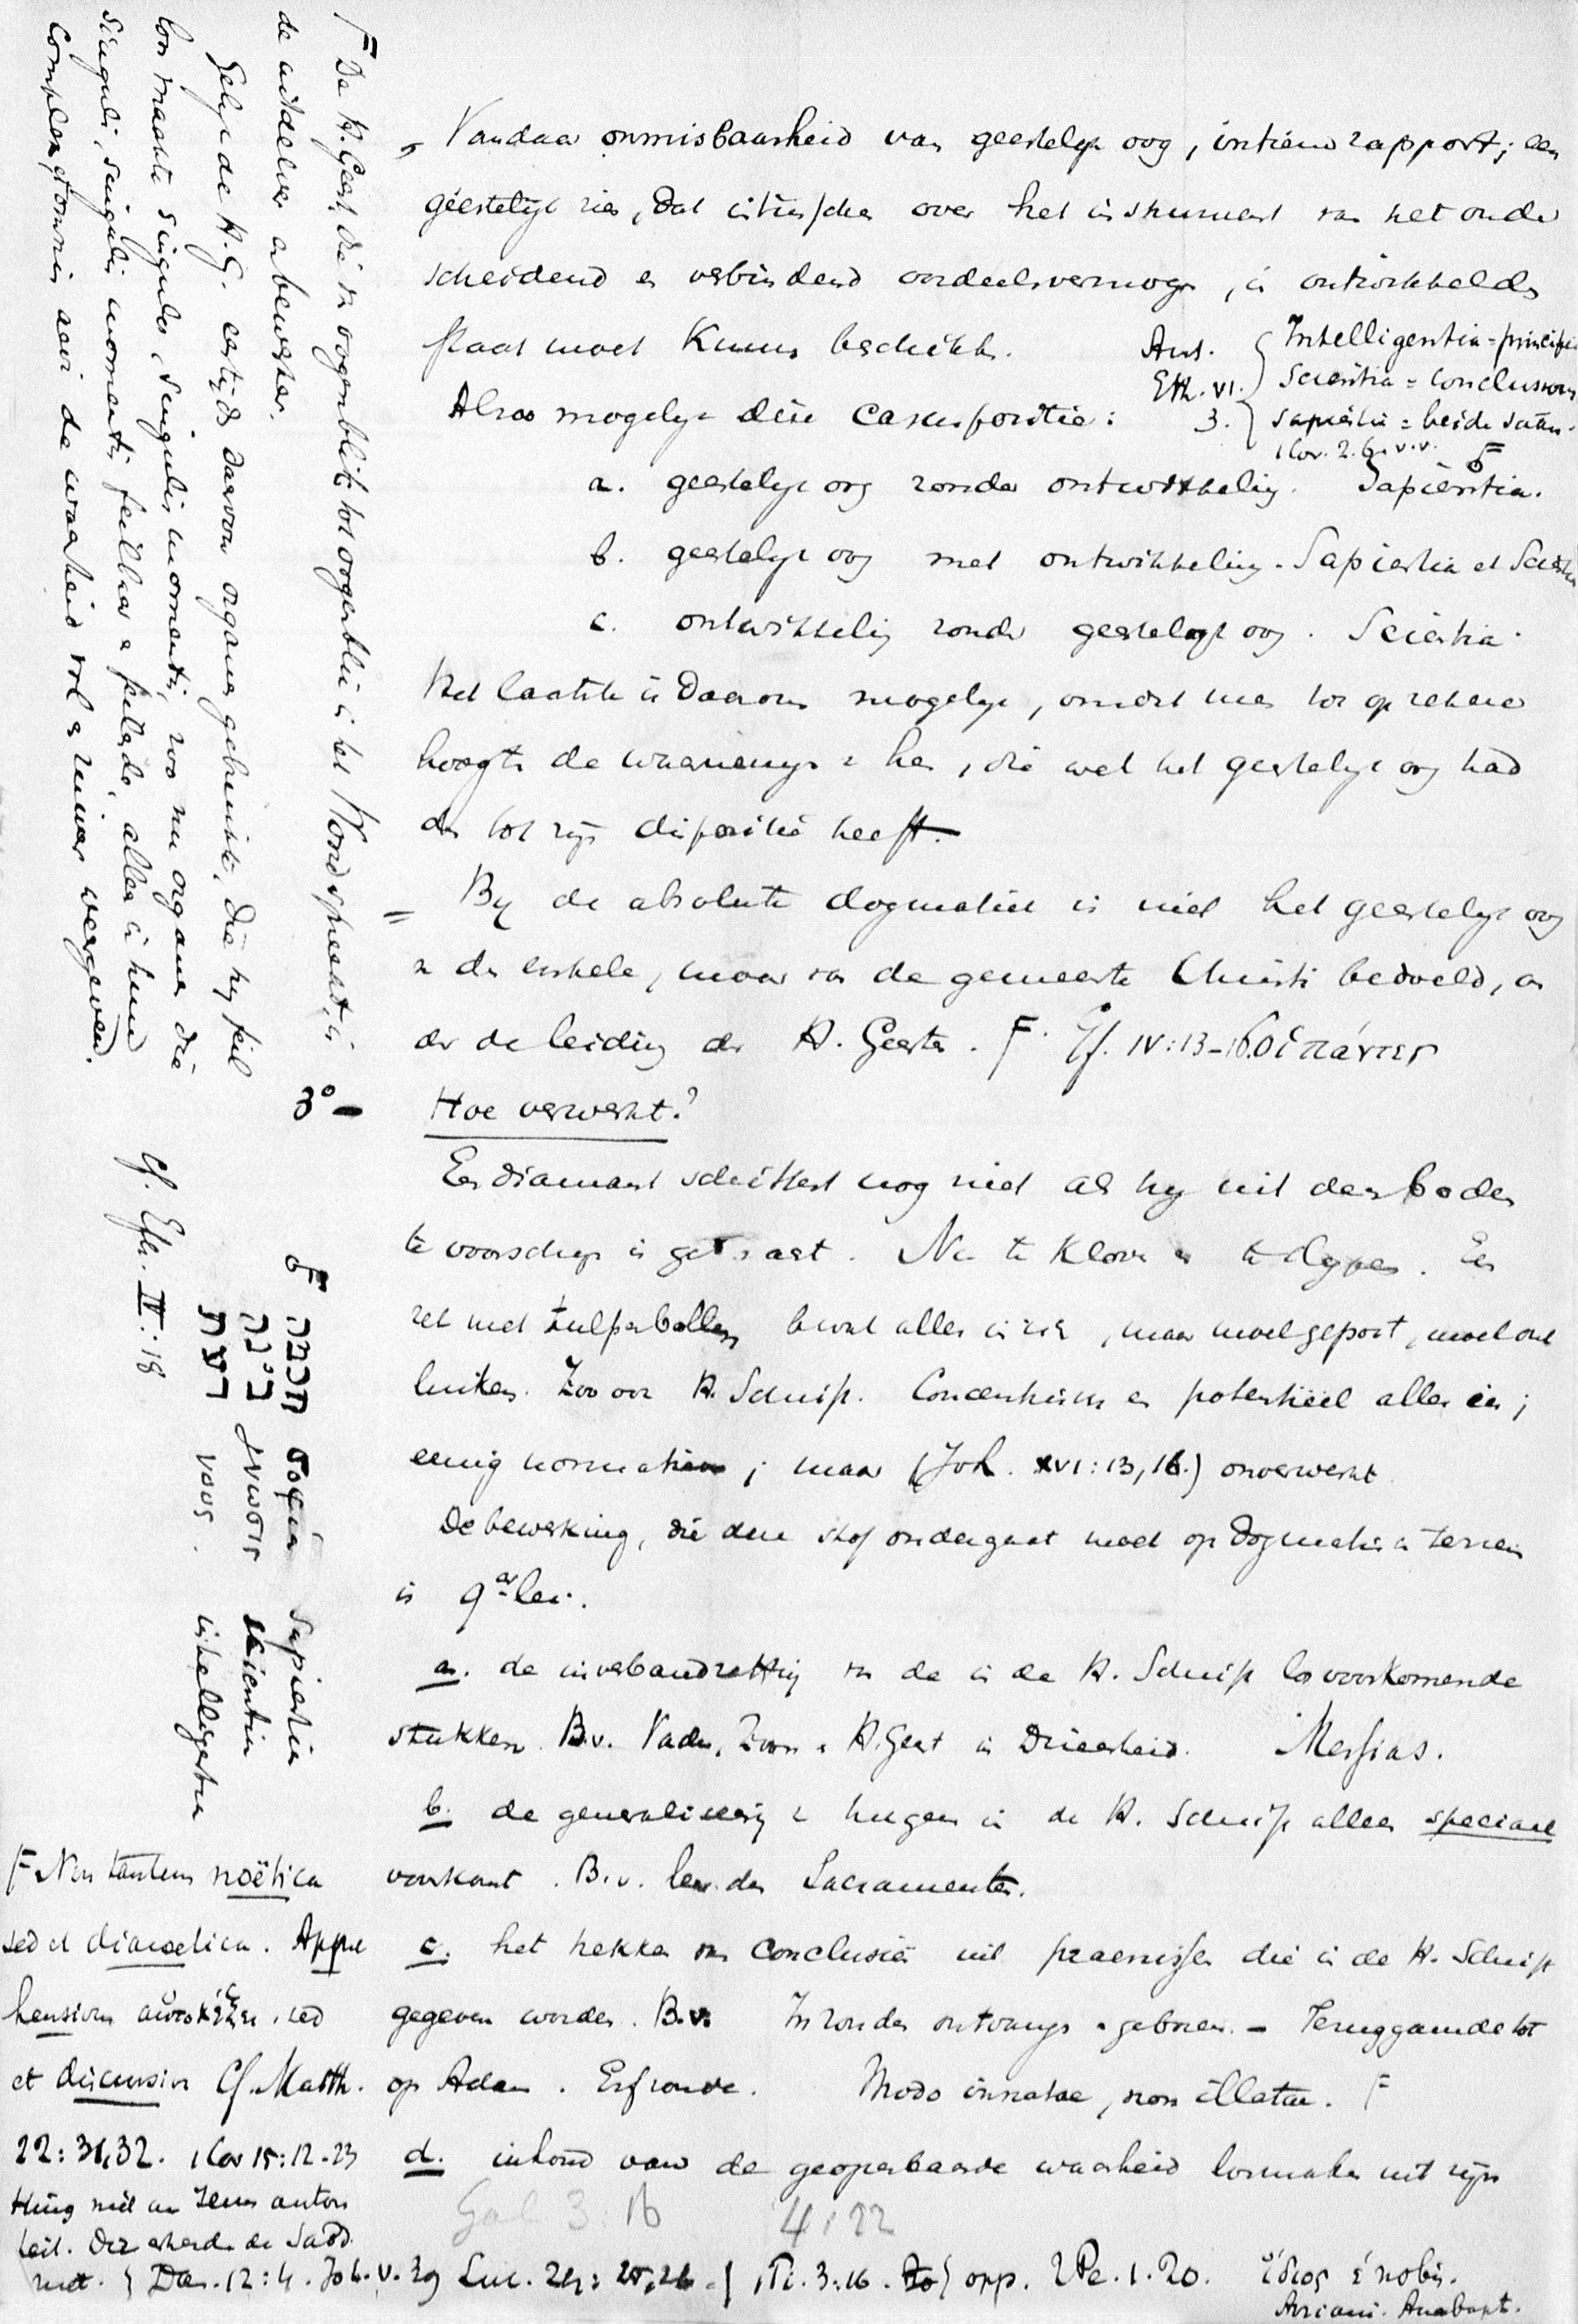 Vandaar onmisbaarheid van geestelyk oog, intiem rapport; een
geestelijk zien, dat intusschen over het instrument van het onder
scheidend en verbindend oordeelsvermogen, in ontwikkelden
staat moet kunnen beschikken.
Arist. Eth. VI. 3.
Intelligentia = principia
Scientia = conclusiones
Sapientia = beide saam.
1 Cor. 2.6. v.v.
Alzoo mogelyk deze casuspositie:
a. geestelyk oog zonder ontwikkeling. Sapientia.
b. geestelyk oog met ontwikkeling. Sapientia et Scientia
c. ontwikkeling zonder geestelyk oog. Scientia.
Het laatste is daarom mogelyk, omdat men tot op zekere
hoogte de waarneming v hen, die wel het geestelyk oog had
den tot zijn dispositie heeft.
= By de absolute dogmatiek is niet het geestelyk oog
v den enkele, maar van de gemeente Christi bedoeld, on
der de leiding des H. Geestes. F. Ef. IV:13-16. οἱ πάντες
3° - Hoe verwerkt?
Een diamant schittert nog niet als hy uit den bodem
te voorschyn is gebracht. Nu te kloven en te slypen. Een
zet met tulpenbollen bevat alles in zich, maar moet gepoot, moet ont
luiken. Zoo ook H. Schrift. Concentrisch en potentiëel alles in;
eenig normatief; maar (Joh. XVI:13,16.) onverwerkt.
De bewerking, die deze stof ondergaat moet op dogmatisch terrein
is 9erlei.
a. de inverbandzetting van de in de H. Schrift los voorkomende
stukken. B.v. Vader, Zoon en H. Geest in Drieeheid. Messias.
b. de generaliseering v hetgeen in de H. Schrift alleen speciaal
voorkomt. B.v. leer der Sacramenten.
c. het trekken van conclusiën uit praemissen die in de H. Schrift
gegeven worden. B.v. In zonden ontvangen en geboren. - Teruggaande tot
op Adam. Erfzonde. Modo innatae, non illatae. F
d. inhoud van de geopenbaarde waarheid losmaken uit zijn
Gal 3:16 4:22
F De H. Geest, die van oogenblik tot oogenblik in het Woord spreekt, is
de uitdeeler en bewerker.
Gelyk de H. G. eertijds daarvoor organen gebruikte, die hy feil
loos maakte singulos singulis momentis, zoo nu organen die
singuli, singulis momentis feilbaar en falende, allen in hun
complex getuigenis aan de waarheid vol en zuiver weergeven.
Cf. Eph. III:18
F
חכמה σοφία Sapientia
בינה γνῶσις scientia
דעת νοῦς. intelligentia
F Non tantum noëtica
sed et dianoetica. Appre
hensiva, sed
et discursiva Cf. Matth.
22:31,32. 1 Cor 15:12-23
Hing niet aan Jezus autori
teit. Daz erkende de Sadd.
niet. { Dan. 12:4. Joh. V. 39 Luc. 24: 25,26. { 1 Ti. 3:16. opp. 2 Pe. 1.20. ἴδιος
Ariani. Anabapt.